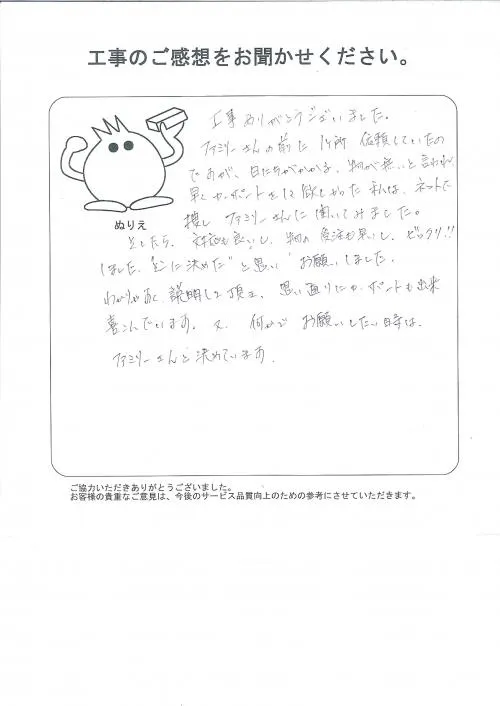 工事のご感想をお聞かせください。
工事ありがとうございました。
ファミリーさんの前に1ヶ所 依頼していたの
ですが、日にちがかかる、物が無いと言われ、
早くカーポートをして欲しかった私は、ネットで
捜し ファミリーさんに聞いてみました。
ぬりえ
そしたら、対応も良いし、物の発注も早いし、ビックリ!!
しました。"ここに決めた"と思い お願いしました。
わかりやすく、説明して頂き、思い通りにカーポートも出来
喜こんでいます。又、何かで お願いしたい時は、
ファミリーさんと決めています。
ご協力いただきありがとうございました。
お客様の貴重なご意見は、今後のサービス品質向上のための参考にさせていただきます。